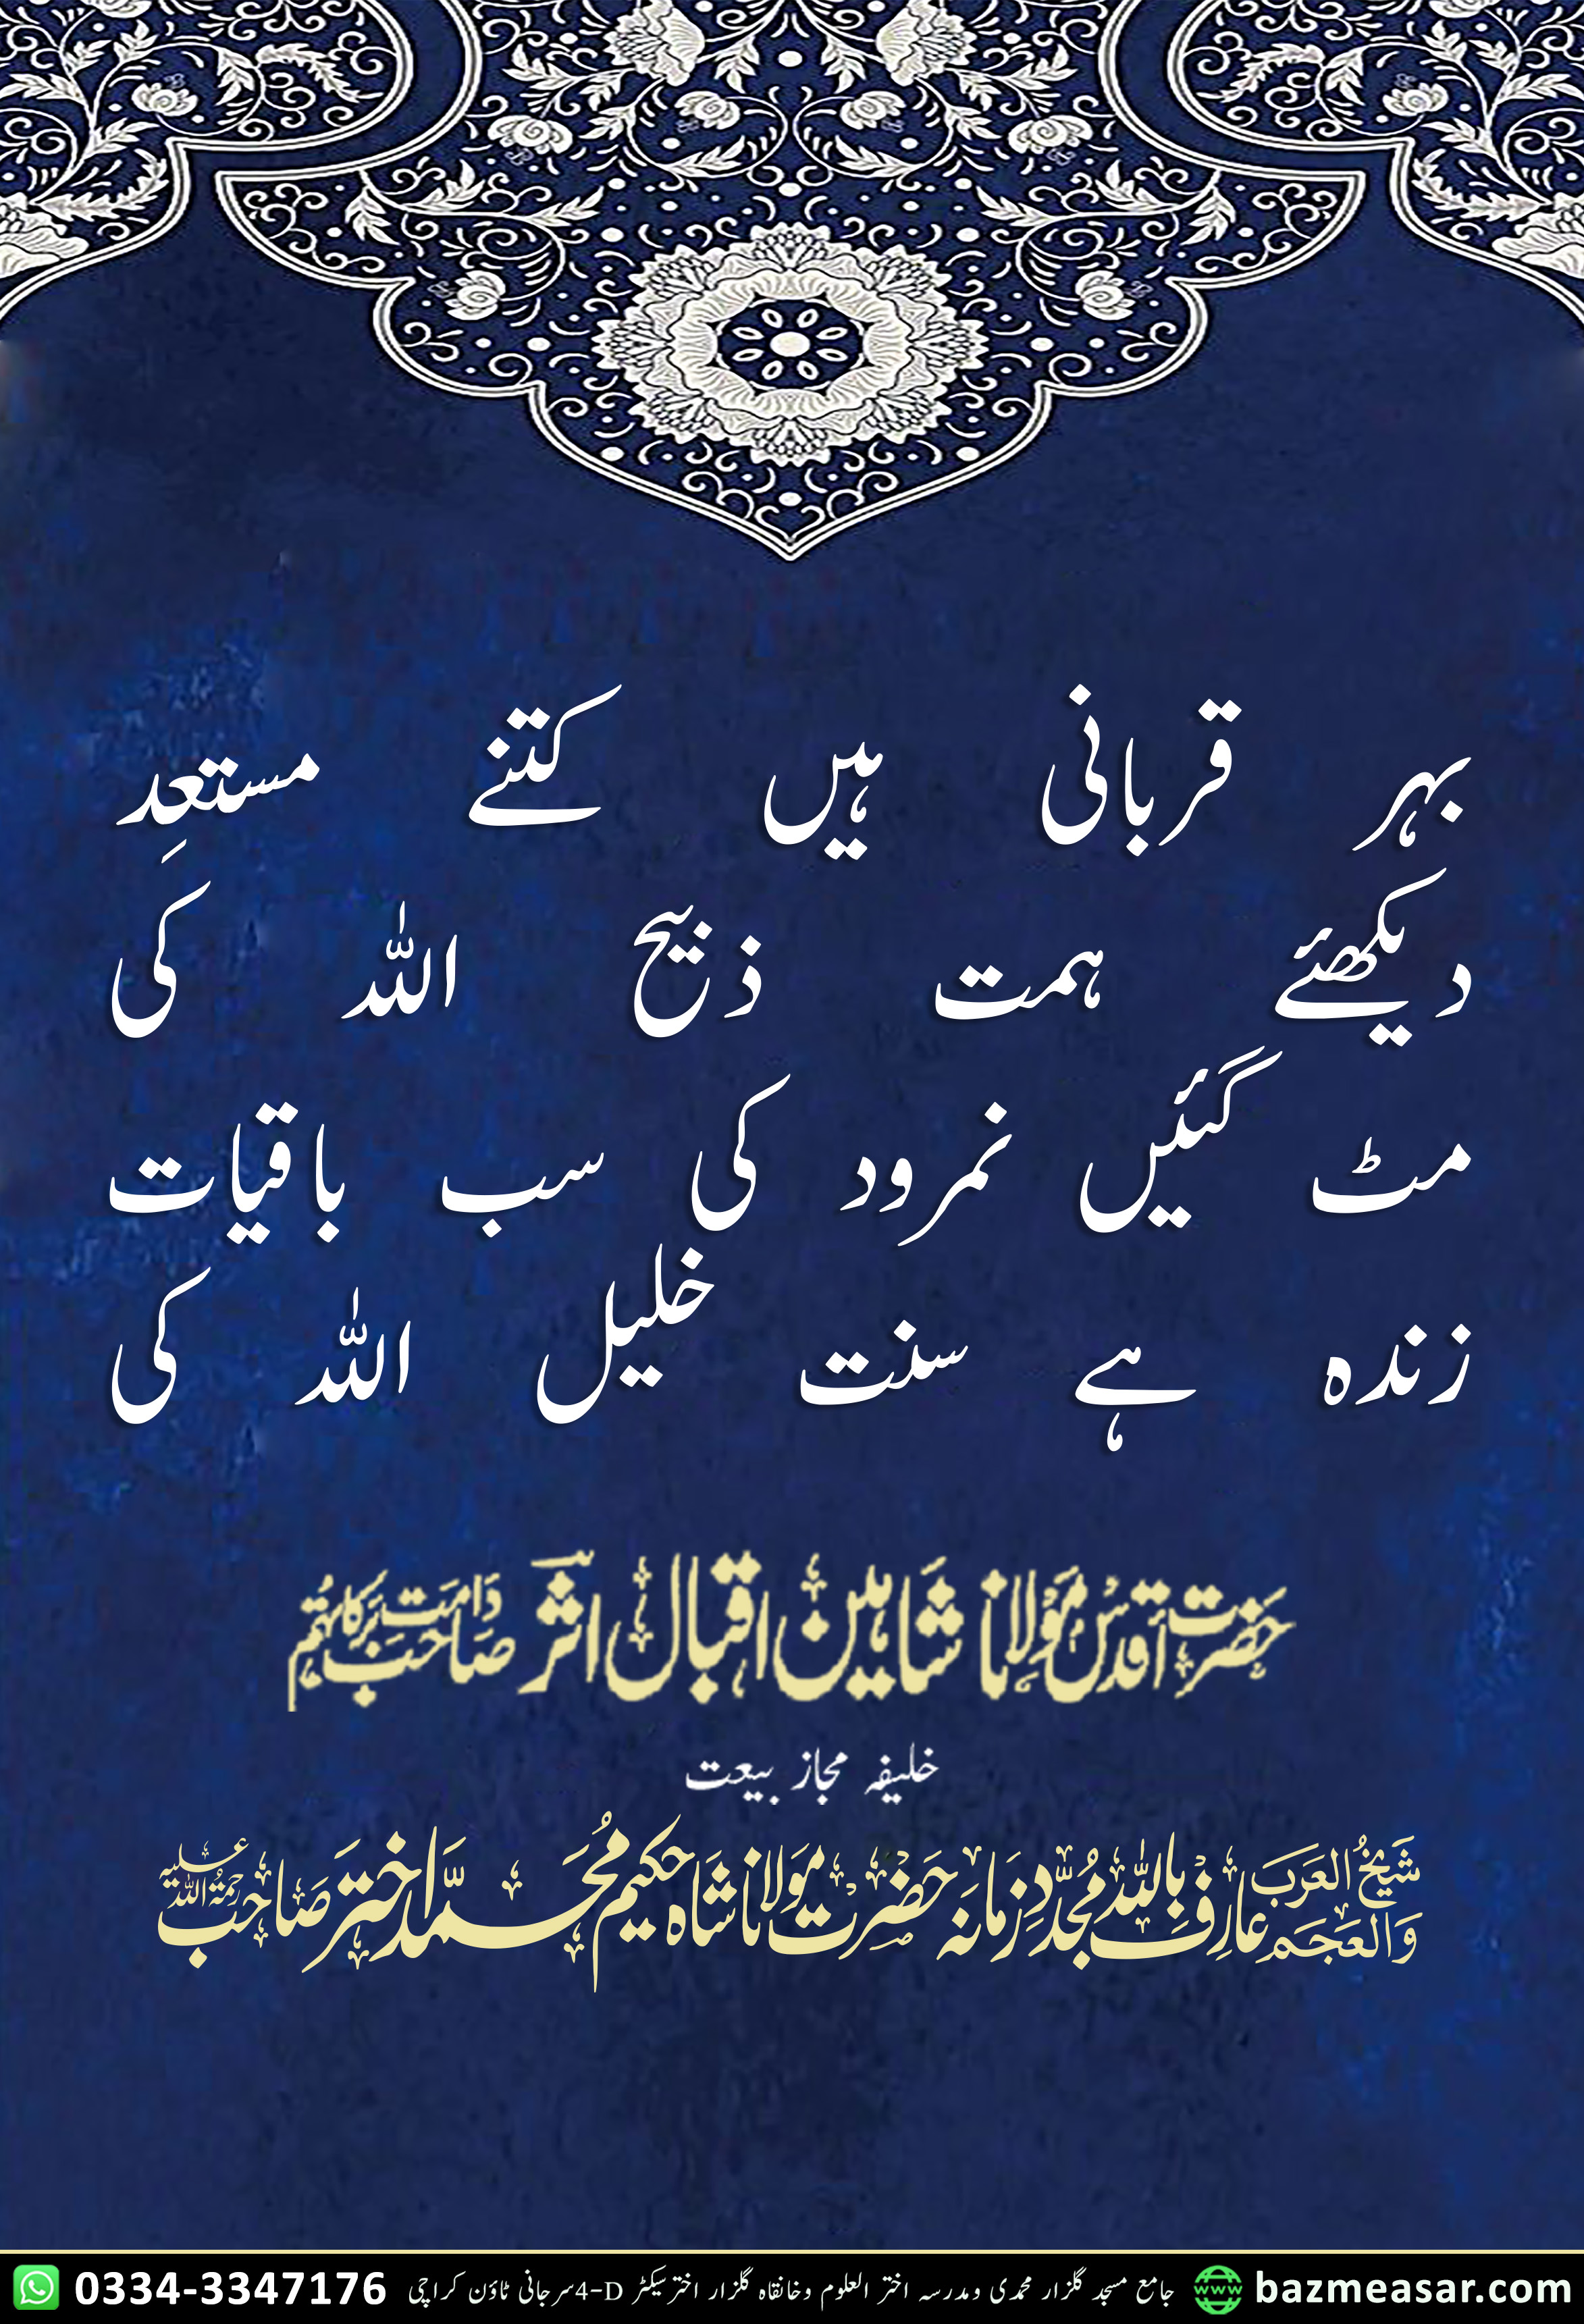 بہر قربانی ہیں کتنے مستعدِ
دیکھئے ہمت ذبیح اللہ کی
مٹ گئیں نمرود کی سب باقیات
زندہ ہے سنت خلیل اللہ کی
حضرت اقدس مولانا شاہین اقبال اثر صاحب دامت برکاتہم
خلیفہ مجاز بیعت
شیخ العرب والعجم عارف باللہ مجدد زمانہ حضرت مولانا شاہ حکیم محمد اختر صاحب رحمۃ اللہ علیہ
0334-3347176 جامع مسجد گلزار محمدی ومدرسہ اختر العلوم وخانقاہ گلزار اختر سیکٹر 4-D سرجانی ٹاؤن کراچی www bazmeasar.com